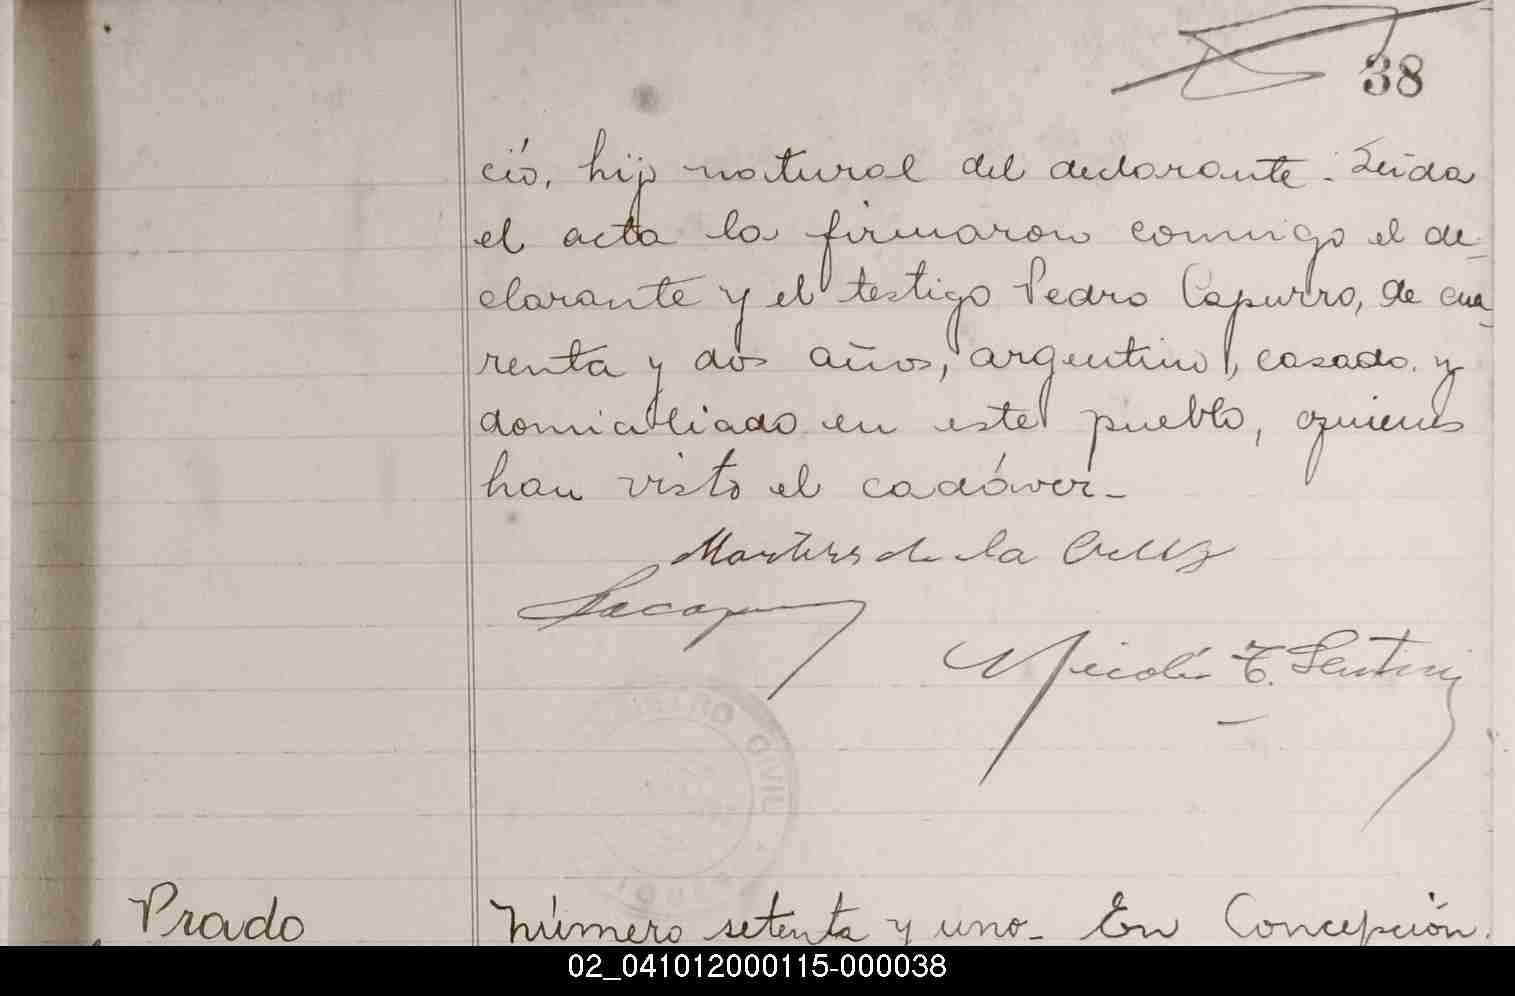 38
ció, hijo natural del declarante. Leida
el acta la firmaron conmigo el de-
clarante y el testigo Pedro Capurro, de cua-
renta y dos años, argentino, casado y
domiciliado en este pueblo, quienes
han visto el cadáver-
de la Cruz
REGISTRO CIVIL
Prado
Número setenta y uno- En Concepción.
02_041012000115-000038